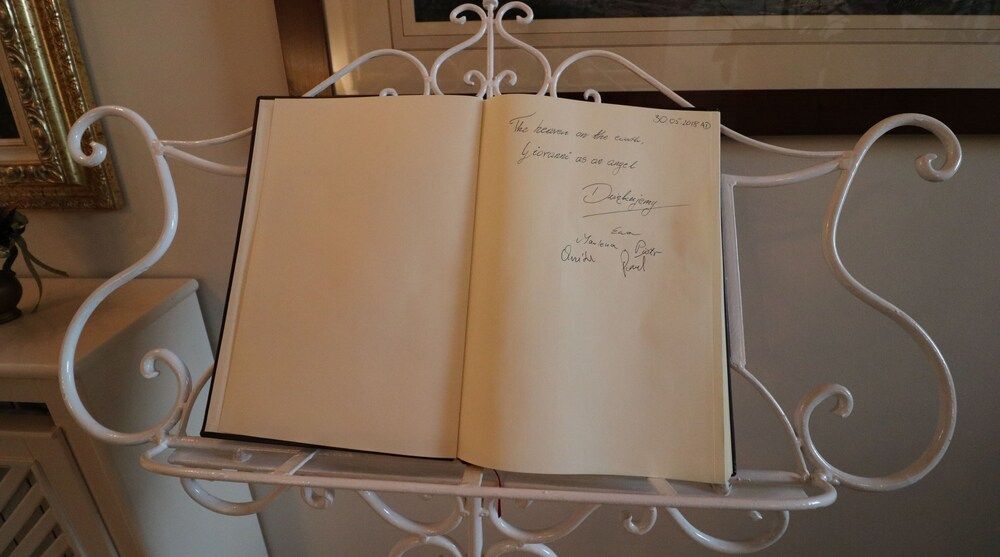 30.05.2018
The heaven on the earth,
Giovanni as an angel
Dziękujemy
Ewa
Marlena Piotr
Paweł